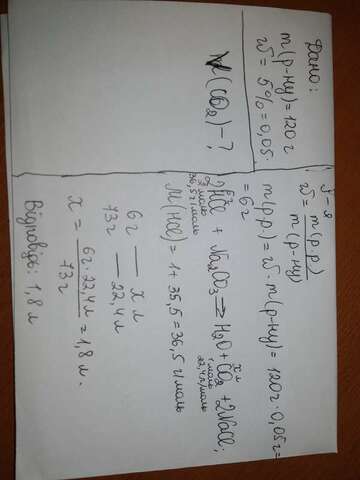 Дано:
m(р-ну)=120г
W=5%=0,05.
V(CO₂)-?
Р-я
W = m(р.р) / m(р-ну)
m(р.р)=W·m(р-ну)=120г·0,05г=
=6г
6г x л
2HCl + Na₂CO₃ → H₂O + CO₂ + 2NaCl;
2моль 1моль
36,5г/моль 22,4л/моль
M(HCl)=1+35,5=36,5г/моль
6г — x л
73г — 22,4л
x = 6г·22,4л / 73г = 1,8 л.
Відповідь: 1,8 л